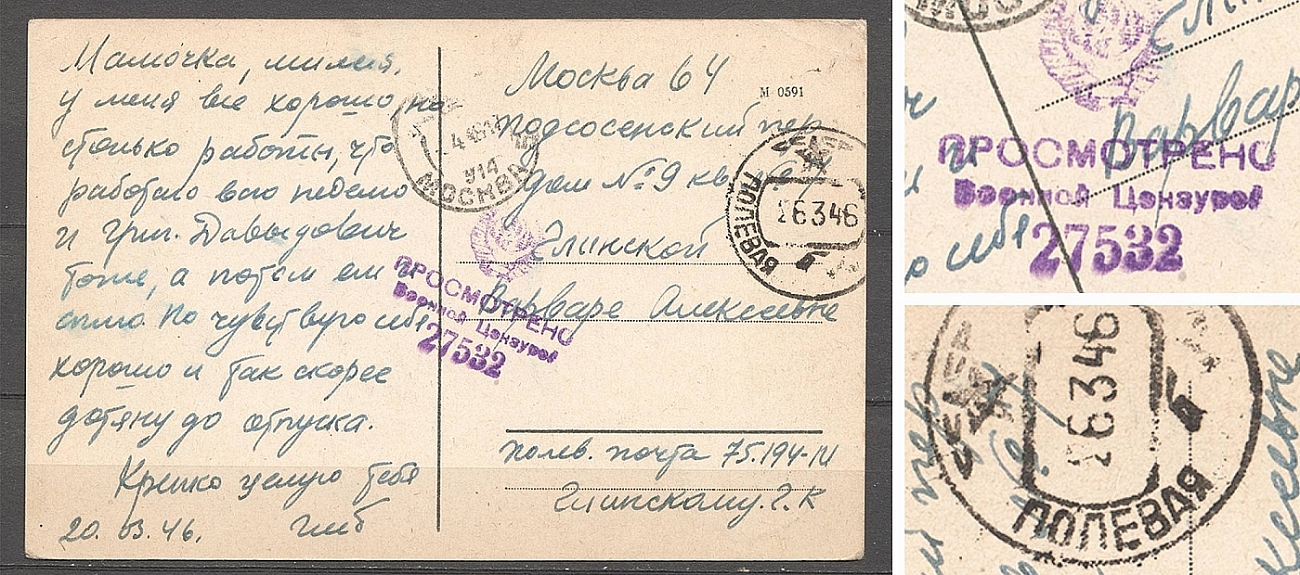 Мамочка, милая,
у меня все хорошо, на
столько работы, что
работаю всю неделю
и Григ. Давыдович
тоже, а потом ем и
сплю. Но чувствую себя
хорошо и так скорее
дотяну до отпуска.
Крепко целую тебя
20. 03. 46. Глеб
Москва 64
М 0591
Подсосенский пер
дом № 9 кв.
Глинской
Варваре Алексеевне
полев. почта 75.194-М
Глинскому. Г. К
4 46
914
МОСКВА
ПОЛЕВАЯ
26 3 46
ПРОСМОТРЕНО
Военной Цензурой
27532
ПРОСМОТРЕНО
Военной Цензурой
27532
26 3 46
ПОЛЕВАЯ